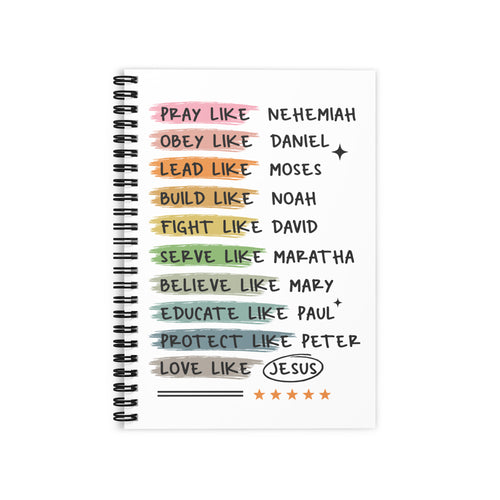 PRAY LIKE NEHEMIAH
OBEY LIKE DANIEL
LEAD LIKE MOSES
BUILD LIKE NOAH
FIGHT LIKE DAVID
SERVE LIKE MARATHA
BELIEVE LIKE MARY
EDUCATE LIKE PAUL
PROTECT LIKE PETER
LOVE LIKE JESUS